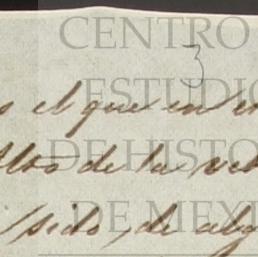 CENTRO
3
ESTUDIO
s el que en
DE HISTO
de la
DE MEXI
sido, de